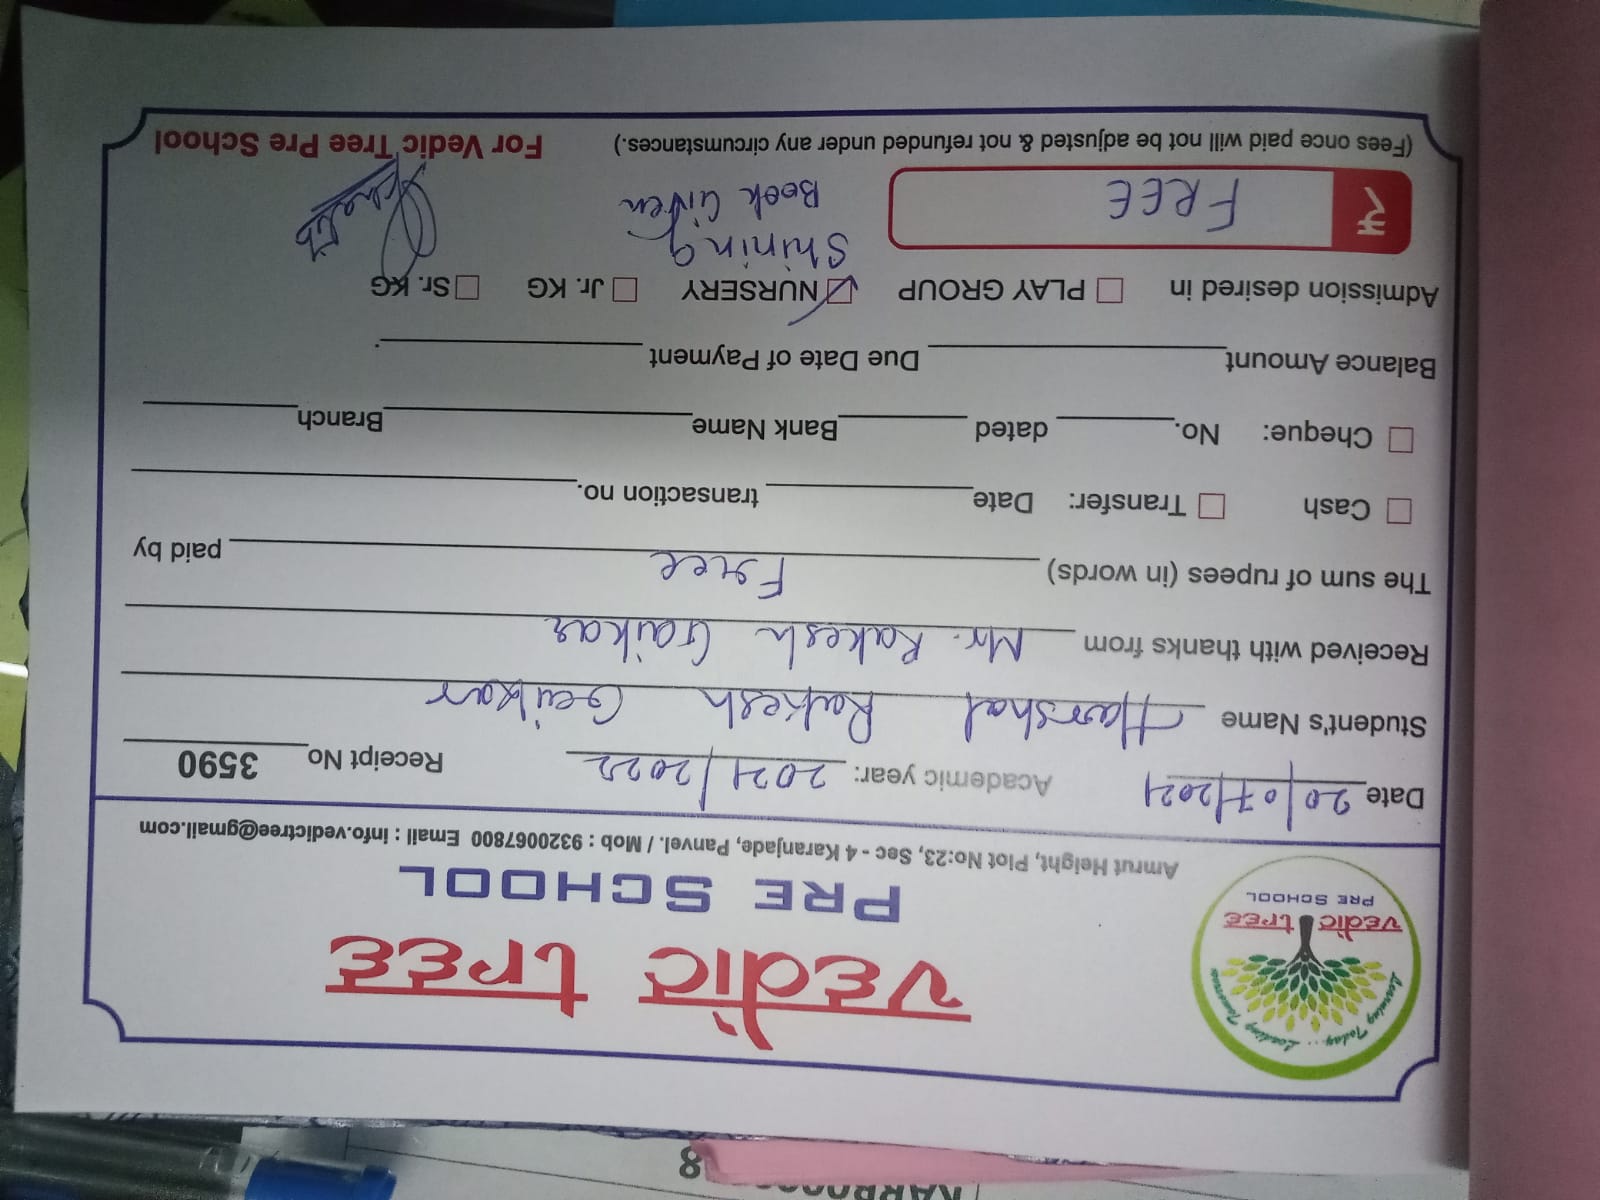 Learning Today... Leading Tomorrow
vedic tree
PRE SCHOOL
vedic tree
PRE SCHOOL
Amrut Height, Plot No:23, Sec - 4 Karanjade, Panvel. / Mob : 9320067800 Email : info.vedictree@gmail.com
Date 20/07/2021 Academic year: 2021/2022 Receipt No 3590
Student's Name Harshal Rakesh Gaikar
Received with thanks from Mr. Rakesh Gaikar
The sum of rupees (in words) Free paid by
Cash Transfer: Date transaction no.
Cheque: No. dated Bank Name Branch
Balance Amount Due Date of Payment
Admission desired in PLAY GROUP NURSERY Jr. KG Sr. KG
₹ FREE
Shining
Book Given
(Fees once paid will not be adjusted & not refunded under any circumstances.) For Vedic Tree Pre School
8